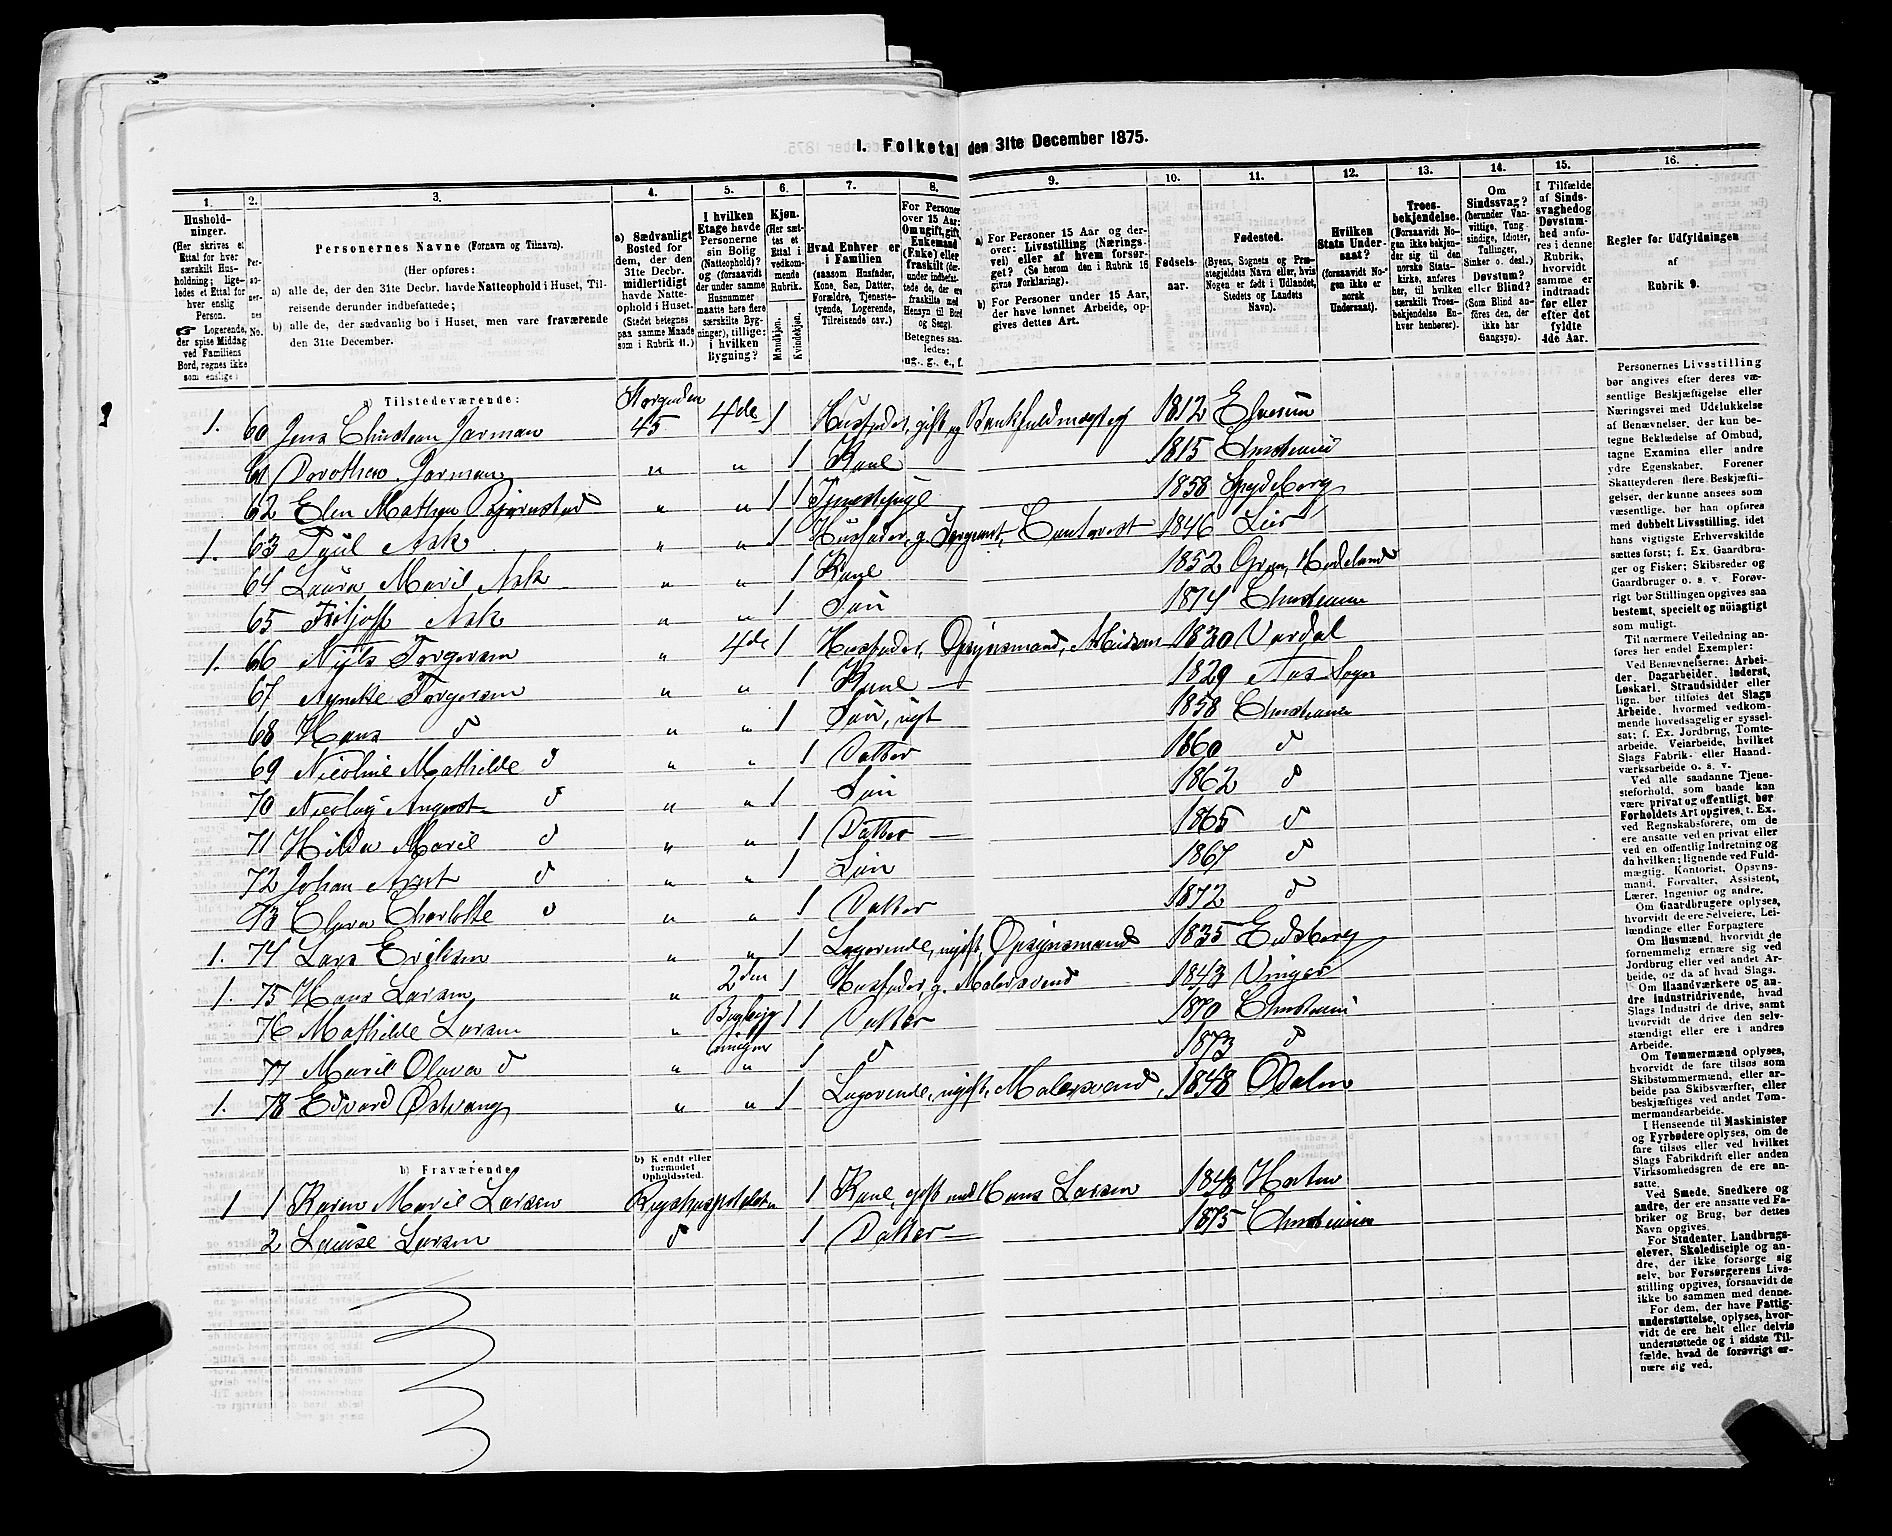 I. Folketal den 31te December 1875.
1. 2. 3. 4. 5. 6. 7. 8. 9. 10. 11. 12. 13. 14. 15. 16.
Husholdninger.
(Her skrives et
Ettal for hver
særskilt Husholdning;
ligeledes et Ettal for
hver enslig
Person.
Logerende,
der spise Middag
ved Familiens
Bord, regnes ikke
som enslige.)
Personernes No.
Personernes Navne (Fornavn og Tilnavn).
(Her opføres:
a) alle de, der den 31te Decbr. havde Natteophold i Huset, Tilreisende derunder indbefattede;
b) alle de, der sædvanlig bo i Huset, men vare fraværende
den 31te December.
a) Sædvanligt
Bosted for
dem, der den
31te Decbr.
midlertidigt
havde Natteophold
i Huset.
(Stedet betegnes
paa samme Maade
som i Rubrik 11.)
I hvilken
Etage havde
Personerne
sin Bolig
(Natteophold)?
og (forsaavidt
der under samme
Husnummer
maatte høre flere
særskilte Bygninger),
tillige:
i hvilken
Bygning?
Kjøn.
(Her sættes
et
Ettal i
vedkommende
Rubrik.
Mandkjøn.
Kvindekjøn.
Hvad Enhver er
i Familien
(saasom Husfader,
Kone, Søn, Datter,
Forældre, Tjenestetyende,
Logerende,
Tilreisende osv.)
For Personer
over 15 Aar:
Om ugift, gift,
Enkemand
(Enke) eller
fraskilt
Betegnes saaledes:
ug., g., e., f.
a) For Personer 15 Aar og derover:
Livsstilling (Næringsvei)
eller af hvem forsørget?
(Se herom den i Rubrik 16
givne Forklaring).
b) For Personer under 15 Aar,
der have lønnet Arbeide, opgives
dettes Art.
Fødselsaar.
Fødested.
(Byens, Sognets og Præstegjeldets
Navn eller, hvis
Nogen er født i Udlandet,
Stedets og Landets
Navn).
Hvilken
Stats Undersaat?
(forsaavidt Nogen
ikke er
norsk
Undersaat).
Troesbekjendelse.
(Forsaavidt Nogen
ikke bekjender
sig til den
norske Statskirke,
anføres
her, til hvilken
særskilt Troesbekjendelse
Enhver
henhører).
Om
Sindssvag?
(herunder Vanvittige,
Tungsindige,
Idioter,
Tullinger,
Sinker o. desl.)
Døvstum?
eller Blind?
(Som Blind anføres
den, der
ikke har
Gangsyn).
I Tilfælde
af Sindssvaghed
og
Døvstumhed
anføres
i denne
Rubrik,
hvorvidt
samme er
indtraadt
før eller
efter det
fyldte
4de Aar.
Regler for Udfyldningen
af
Rubrik 9.
a) Tilstedeværende:
1. 60 Jens Christian Jarman Storgaden 45 4de 1 Husfader, gift og Bankfuldmægtig 1812 Elverum
61 Dorothea Jarman „ „ 1 Kone 1815 Christiania
62 Elen Mathea Bjørnstad „ „ 1 Tjenestepige 1858 Spydeberg
1. 63 Paul Ask „ „ 1 Husfader, g. Sergeant, 1846 Lier
64 Laura Marie Ask „ „ 1 Kone 1852 Gran, Hadeland
65 Fritjof Ask „ „ 1 Søn 1874 Christiania
1. 66 Nils Torgersen „ 4de 1 Husfader, Opsynsmand, 1830 Vardal
67 Torgersen „ „ 1 Kone 1829 Aas Sogn
68 Hans d „ „ 1 Søn, ugt 1858 Christiania
69 Nicoline Mathilde d „ „ 1 Datter 1860 d
70 Nicolay August d „ „ 1 Søn 1862 d
71 Hilda Marie d „ „ 1 Datter 1865 d
72 Johan Arnt d „ „ 1 Søn 1867 d
73 Clara Charlotte d „ „ 1 Datter 1872 d
1. 74 Lars Eriksen „ „ 1 Logerende, ugift, Opsynsmand 1835 Eidsberg
1. 75 Hans Larsen „ 2den 1 Husfader, g. Malersvend 1843 Vinger
76 Mathilde Larsen „ Bagbygningen 1 Datter 1870 Christiania
77 Marie Olava d „ „ 1 d 1873 d
1. 78 Edvard Østvang „ „ 1 Logerende, ugift, Malersvend, 1848 Odalen
b) Fraværende b) Kjendt eller
formodet
Opholdssted.
1 1 Karen Marie Larsen Rigshospitalet 1 Kone, gift med Hans Larsen 1843 Horten
2 Louise Larsen d 1 Datter 1875 Christiania
Personernes Livsstilling
bør angives efter deres væsentlige
Beskjæftigelse eller
Næringsvei med Udelukkelse
af Benævnelser, der kun betegne
Beklædelse af Ombud,
tagne Examina eller andre
ydre Egenskaber. Forener
Skatteyderen flere Beskjæftigelser,
der kunne ansees som
væsentlige, bør han opføres
med dobbelt Livsstilling, idet
hans vigtigste Erhvervskilde
sættes først; f. Ex. Gaardbruger
og Fisker; Skibsreder og
Gaardbruger o. s. v. Forøvrigt
bør Stillingen opgives saa
bestemt, specielt og nøiagtigt
som muligt.
Til nærmere Veiledning anføres
her endel Exempler:
Ved Benævnelserne: Arbeider,
Dagarbeider, Inderst,
Løskarl, Strandsidder eller
lign. bør tilføies det Slags
Arbeide, hvormed vedkommende
hovedsagelig er sysselsat;
f. Ex. Jordbrug, Tomtearbeide,
Veiarbeide, hvilket
Slags Fabrik- eller Haandværksarbeide
o. s. v.
Ved alle saadanne Tjenesteforhold,
som baade kan
være privat og offentligt, bør
Forholdets Art opgives, t. Ex.
ved Regnskabsførere, om de
ere ansatte ved en privat eller
ved en offentlig Indretning og
da hvilken; lignende ved Fuldmægtig,
Kontorist, Opsynsmand,
Forvalter, Assistent,
Lærer, Ingeniør og andre.
Om Gaardbrugere oplyses,
hvorvidt de ere Selveiere, Leilændinge
eller Forpagtere
Om Husmænd, hvorvidt de
fornemmelig ernære sig ved
Jordbrug eller ved andet Arbeide,
og da af hvad Slags.
Om Haandværkere og andre
Industridrivende, hvad
Slags Industri de drive, samt
hvorvidt de drive den selvstændigt
eller ere i andres
Arbeide.
Om Tømmermænd oplyses,
hvorvidt de fare tilsøs som
Skibstømmermænd, eller arbeide
paa Skibsværfter, eller
beskjæftiges ved andet Tømmermandsarbeide.
I Henseende til Maskinister
og Fyrbødere oplyses, om de
fare tilsøs eller ved hvilket
Slags Fabrikdrift eller anden
Virksomhedsgren de ere ansatte.
Ved Smede, Snedkere og
andre, der ere ansatte ved Fabriker
og Brug, bør dettes
Navn opgives.
For Studenter, Landbrugselever,
Skoledisciple og andre,
der ikke forsørge sig
selv, bør Forsørgerens Livsstilling
opgives, forsaavidt de
ikke bo sammen med denne.
For dem, der have Fattigunderstøttelse,
oplyses, hvorvidt
de ere helt eller delvis
understøttede og i sidste Tilfælde,
hvad de forøvrigt ernære
sig ved.